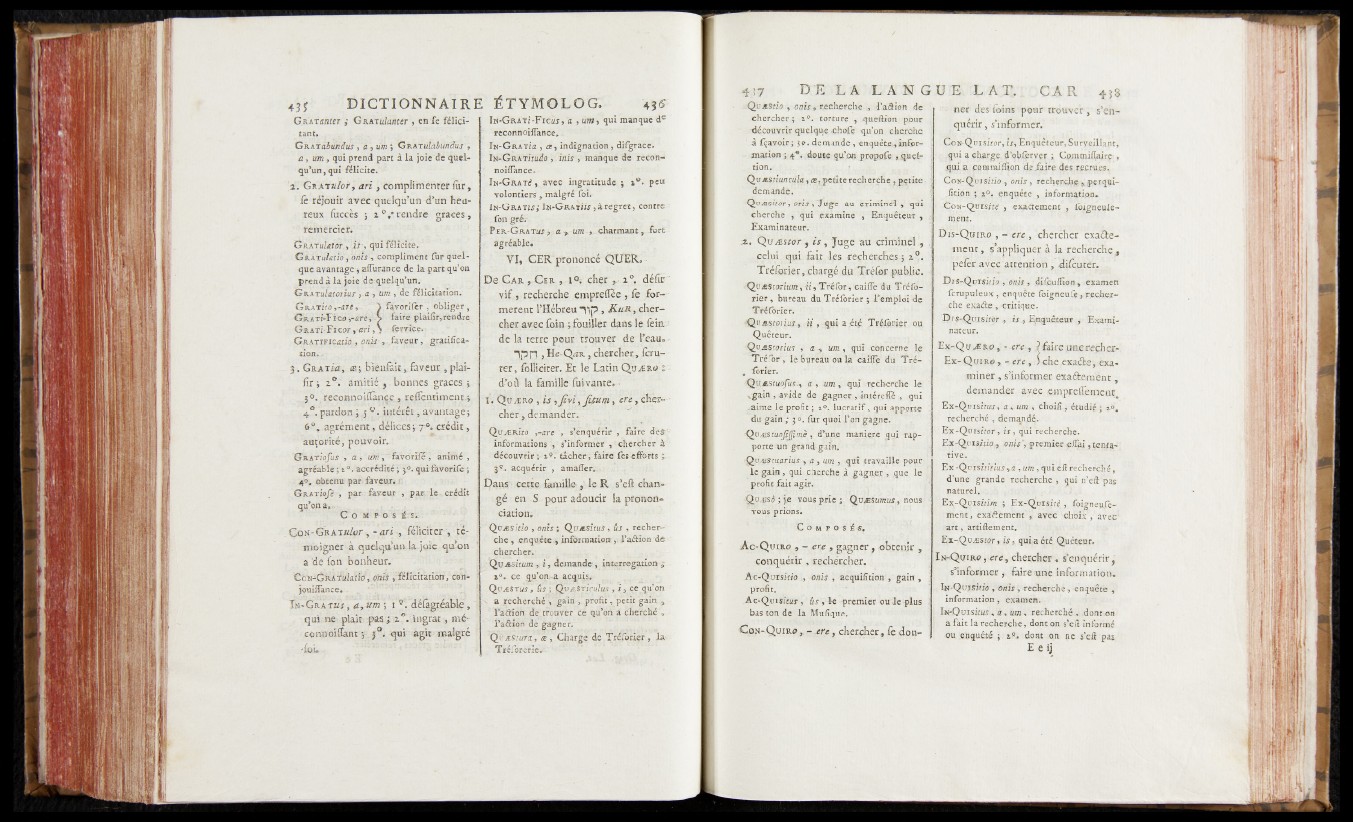 435 DICTIONNAIRE ÉTYMOLOG. 436
GRATanter ; GRATulanter , en ſe félici-
tant.
GRATabundus , a , um ; GRATulabundus ,
a , um , qui prend part à la joie de quel-
qu'un, qui félicite.
2. GRATulor, ari , complimenter ſur,
ſe réjouir avec quelqu'un d'un heu-
reux ſuccès ; 2°. rendre graces,
remercier.
GRATulator , is , qui félicite.
GRATulatio, onis , compliment ſur quel-
que avantage, aſſurance de la part qu'on
prend à la joie de quelqu'un.
GRATulatorius , a , um , de félicitation.
GRATito,-are, } favoriſer , obliger,
GRATi-FICO,-are, } faire plaiſir,rendre
GRATi-FICOr, ari, } ſervice.
GRATIFICatio , onis , faveur, gratifica-
tion.
3. GRATia, æ; bienfait, faveur, plai-
ſir ; 2°. amitié , bonnes graces ;
3°. reconnoiſſance , reſſentiment ;
4°. pardon ; 5°. intérêt, avantage;
6°. agrément, délices; 7°. crédit,
autorité, pouvoir.
GRATioſus , a , um , favoriſé , animé ,
agréable; 2°. accrédité; 3°. qui favoriſe;
4°. obtenu par faveur.
GRATioſe , par faveur , par le crédit
qu'on a.
COMPOSÉS.
CON-GRATulor, -ari , féliciter , té-
moigner à quelqu'un la joie qu'on
a de ſon bonheur.
CON-GRATulatio, onis , félicitation, con-
jouiſſance.
IN-GRATUS, a, um ; 1°. déſagréable,
qui ne plaît pas ; 2°. ingrat, mé-
connoiſſant ; 3°. qui agit malgré
ſoi.
IN-GRATi-FICus, a , um, qui manque de
reconnoiſſance.
IN-GRATia , æ, indignation, diſgrace.
IN-GRATitudo , inis , manque de recon-
noiſſance.
IN-GRATè, avec ingratitude ; 2°. peu
volontiers , malgré ſoi.
IN-GRATis; IN-GRATiis ,à regret, contre
ſon gré.
PER-GRATus , a , um , charmant, fort
agréable.
VI, CER prononcé QUER.
De CAR , CER , 1°. cher , 2°. déſir
vif , recherche empreſſée , ſe for-
merent l'Hébreu קור, KuR, cher-
cher avec ſoin ; fouiller dans le ſein
de la terre pour trouver de l'eau.
חקר , He-QAR, chercher, ſcru-
ter, ſolliciter. Et le Latin QUÆRO :
d'où la famille ſuivante.
1. QUÆRO , is ,ſivi, ſitum, ere, cher-
cher, demander.
QUÆRito ,-are , s'enquérir , faire des
informations , s'informer , chercher à
découvrir ; 2°. tâcher, faire ſes efforts ;
3°. acquérir , amaſſer.
Dans cette famille , le R s'eſt chan-
gé en S pour adoucir la pronon-
ciation.
QUÆSitio , onis ; QUÆSitus , ûs , recher-
che , enquête , information , l'action de
chercher.
QUÆSitum , i, demande, interrogation ;
2°. ce qu'on a acquis.
QUÆSTus , ûs ; QUÆSTiculus , i, ce qu'on
a recherché , gain , profit, petit gain ,
l'action de trouver ce qu'on a cherché ,
l'action de gagner.
QUÆSTura, æ , Charge de Tréſorier , la
Tréſorerie.
437 DE LA LANGUE LAT. CAR 438
QUÆSTio , onis, recherche , l'action de
chercher ; 2°. torture , queſtion pour
découvrir quelque choſe qu'on cherche
à ſçavoir ; 3°. demande , enquête, infor-
mation ; 4°. doute qu'on propoſe, queſ-
tion.
QUÆSTiuncula, æ, petite recherche , petite
demande.
QUÆSitor, oris , Juge au criminel , qui
cherche , qui examine , Enquêteur ,
Examinateur.
2. QUÆSTor , is, Juge au criminel ,
celui qui fait les recherches ; 2°.
Tréſorier, chargé du Tréſor public.
QUÆSTorium, ii, Tréſor, caiſſe du Tréſo-
rier, bureau du Tréſorier ; l'emploi de
Tréſorier.
QUÆSTorius, ii , qui a été Tréſorier ou
Quêteur.
QUÆSTorius , a , um , qui concerne le
Tréſor , le bureau ou la caiſſe du Tré-
ſorier.
QUÆSTuoſus , a , um , qui recherche le
gain , avide de gagner , intéreſſé , qui
aime le profit ; 2°. lucratif , qui apporte
du gain ; 3°. ſur quoi l'on gagne.
QUÆSTuoſiſſimè , d'une maniere qui rap-
porte un grand gain.
QUÆSTuarius , a , um , qui travaille pour
le gain, qui cherche à gagner, que le
profit fait agir.
QUÆSò ; je vous prie ; QUÆSumus, nous
vous prions.
COMPOSÉS.
AC-QUIRO , - ere , gagner , obtenir ,
conquérir , rechercher.
AC-QUISitio , onis , acquiſition , gain ,
profit.
AC-QUISitus , ûs, le premier ou le plus
bas ton de la Muſique.
CON-QUIRO, - ere , chercher, ſe don-
ner des ſoins pour trouver , s'en-
quérir , s'informer.
CON-QUISitor, is, Enquêteur, Surveillant,
qui a charge d'obſerver ; Commiſſaire ,
qui a commiſſion de faire des recrues.
CON-QUISitio , onis , recherche , perqui-
ſition ; 2°. enquête , information.
CON-QUISitè , exactement , ſoigneuſe-
ment.
DIS-QUIRO , - ere, chercher exacte-
ment , s'appliquer à la recherche ,
peſer avec attention , diſcuter.
DIS-QUISitio , onis , diſcuſſion, examen
ſcrupuleux, enquête ſoigneuſe, recher-
che exacte , critique.
DIS-QUISitor , is , Enquêteur , Exami-
nateur.
EX-QUÆRO , - ere , } faire une recher-
EX-QUIRO , - ere , } che exacte, exa-
miner , s'informer exactement ,
demander avec empreſſement.
EX-QUISitus , a , um , choiſi , étudié ; 2°.
recherché , demandé.
EX-QUISitor , is , qui recherche.
EX-QUISitio , onis , premier eſſai , tenta-
tive.
EX-QUISititius , a , um , qui eſt recherché,
d'une grande recherche , qui n'eſt pas
naturel.
EX-QUISitim ; EX-QUISitè , ſoigneuſe-
ment , exactement , avec choix , avec
art , artiſtement.
EX-QUÆSTor , is , qui a été Quêteur.
IN-QUIRO , ere, chercher , s'enquérir ,
s'informer , faire une information.
IN-QUISitio , onis , recherche , enquête ,
information , examen.
IN-QUISitus , a , um , recherché , dont on
a fait la recherche, dont on s'eſt informé
ou enquêté ; 2°. dont on ne s'eſt pas
E e ij